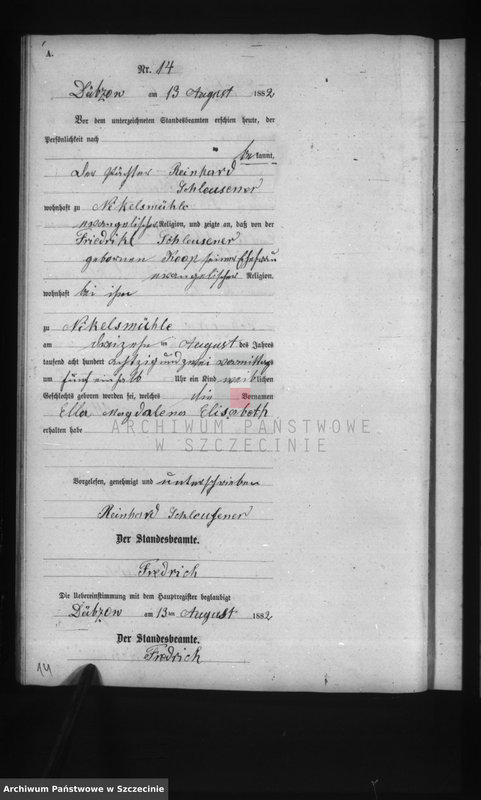 A.
Nr. 14
Dübzow am 13 August 1882
Vor dem unterzeichneten Standesbeamten erschien heute, der
Persönlichkeit nach
be kannt,
der Pächter Reinhard
Schleusener
wohnhaft zu Nekelsmühle
evangelischer Religion, und zeigte an, daß von der
Friedrike Schleusener
gebornen Koop seiner Ehefrau
evangelischer Religion,
wohnhaft bei ihm
zu Nekelsmühle
am dreizehn ten August des Jahres
tausend acht hundert achtzig und zwei vormittags
um fünf einhalb Uhr ein Kind weib lichen
Geschlechts geboren worden sei, welches die Vornamen
Ella Magdalena Elisabeth
erhalten habe
ARCHIWUM PAŃSTWOWE
W SZCZECINIE
Vorgelesen, genehmigt und unterschrieben
Reinhard Schleusener
Der Standesbeamte.
Fredrich
Die Uebereinstimmung mit dem Hauptregister beglaubigt
Dübzow am 13 ten August 1882
Der Standesbeamte.
Fredrich
14
Archiwum Państwowe w Szczecinie